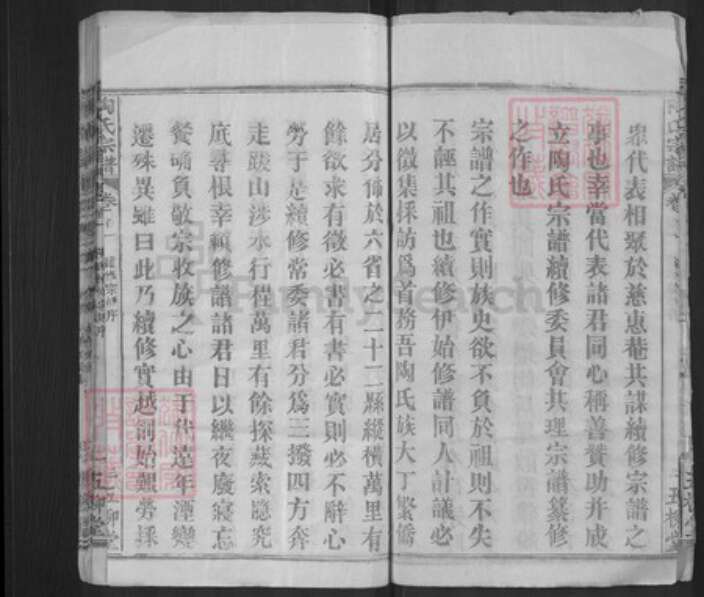 眾代表相聚於慈惠菴共謀續修宗譜之
事也幸當代表諸君同心稱善贊助并成
立陶氏宗譜續修委員會共理宗譜纂修
之作也
宗譜之作實則族史欲不負於祖則不失
不誣其祖也續修伊始修譜同人計議必
以徵集採訪爲首務吾陶氏族大丁繁僑
居分佈於六省之二十二縣縱橫萬里有
餘欲求有徵必書有書必實則必不辭心
勞于是續修常委諸君分爲三撥四方奔
走跋山涉水行程萬里有餘探蔵索隱究
底尋根幸賴修譜諸君日以繼夜廢寢忘
餐確負敬宗收族之心由于代遠年湮變
遷殊異雖曰此乃續修實越創始艱勞採
陶氏宗譜
五柳堂
FamilySearch